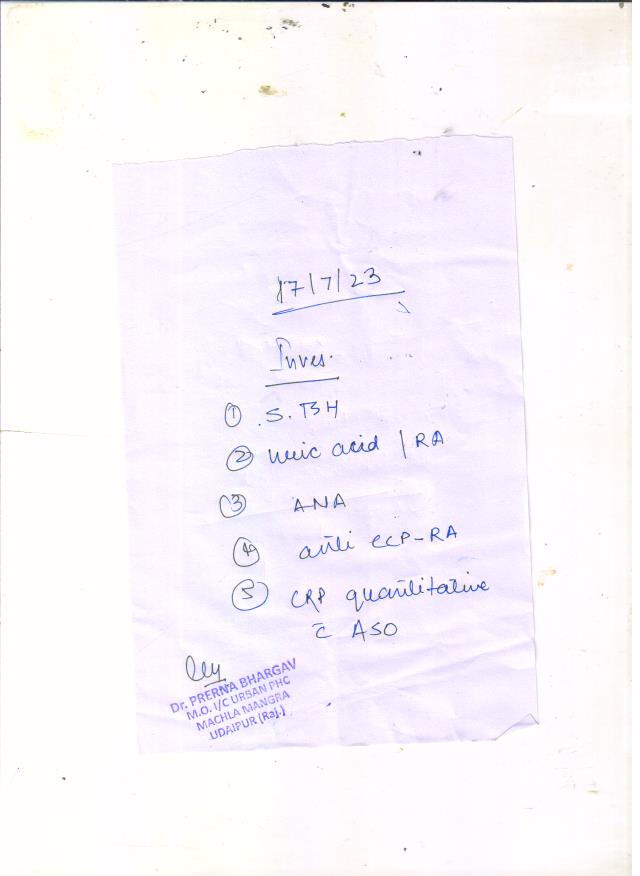 17/7/23
Inves.
① S. TSH
② Uric acid / RA
③ ANA
④ anti CCP-RA
⑤ CRP quantitative
c̄ ASO
Dr. PRERNA BHARGAV
M.O. I/C URBAN PHC
MACHLA MANGRA
UDAIPUR (Raj.)